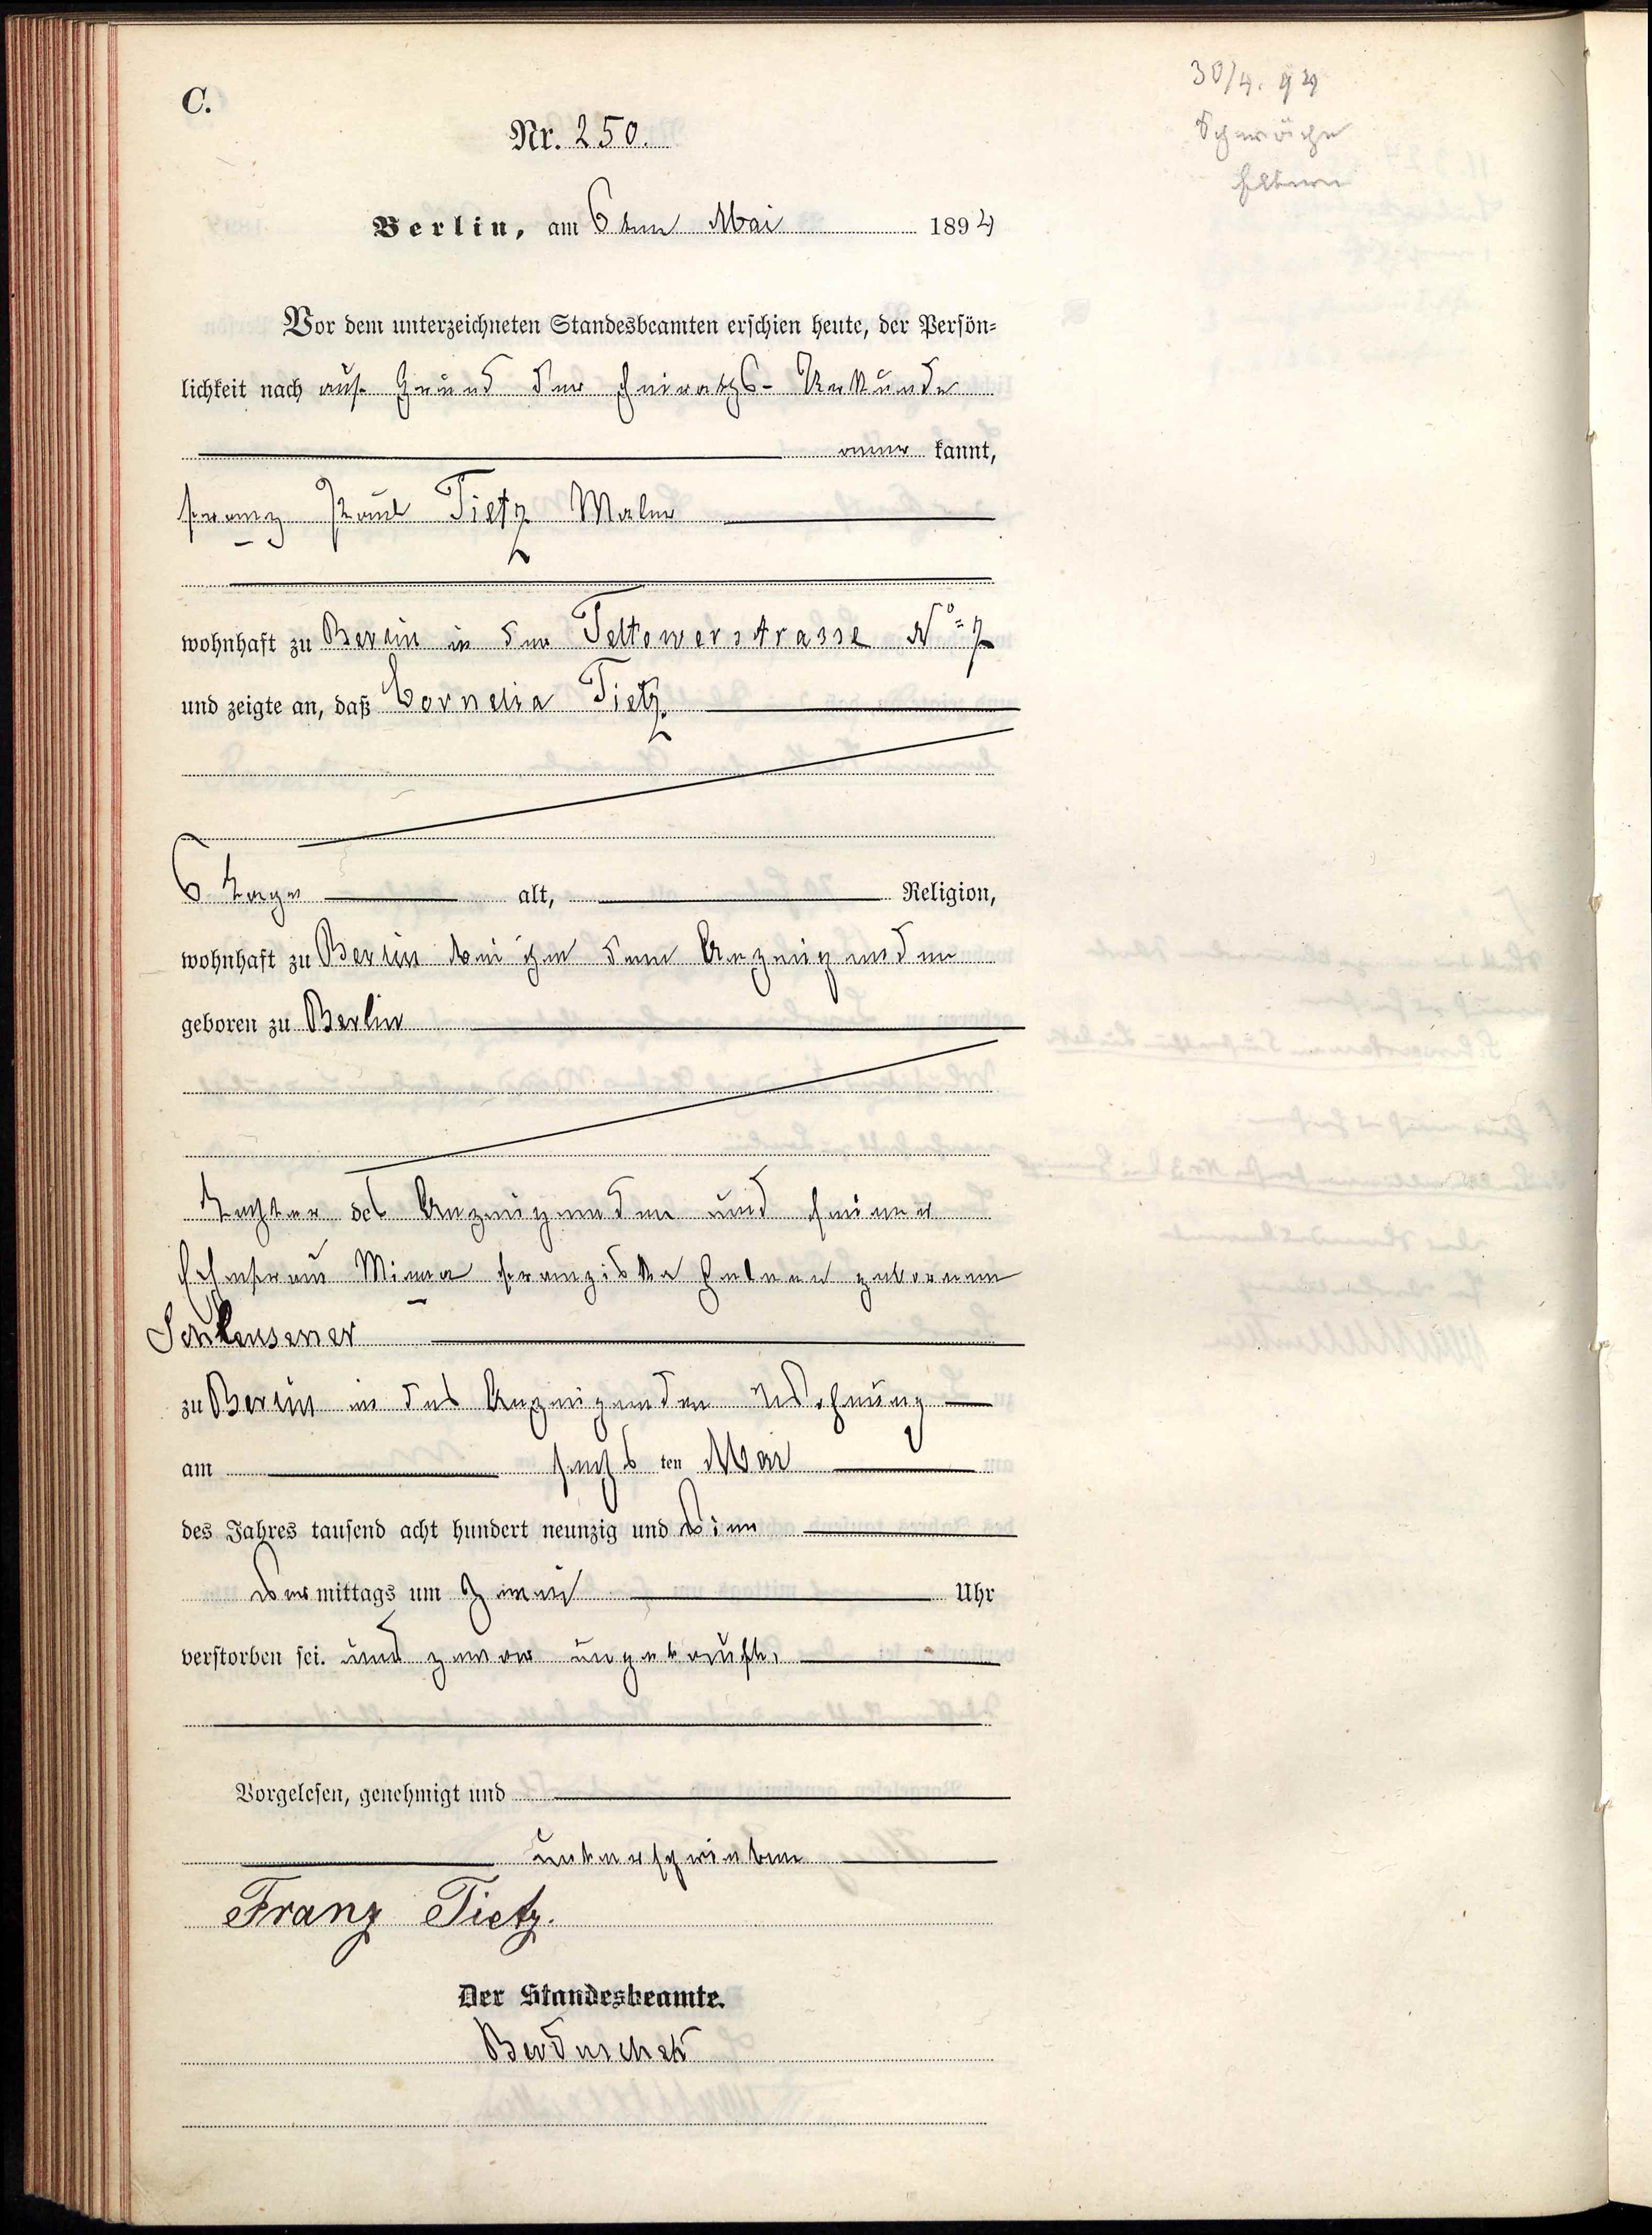 C.
30/4. 94
Schwäche
Eltern
Nr. 250.
Berlin, am 6ten Mai 1894
Vor dem unterzeichneten Standesbeamten erschien heute, der Persön-
lichkeit nach auf Grund der Heiraths-Urkunde
aner kannt,
Franz Paul Tietz Maler
wohnhaft zu Berlin in der Teltowerstrasse No 7
und zeigte an, daß Cornelia Tietz
6 Tage alt, Religion,
wohnhaft zu Berlin bei ihm dem Anzeigenden
geboren zu Berlin
Tochter des Anzeigenden und seiner
Ehefrau Minna Franziska Helene geborenen
Schleusener
zu Berlin in des Anzeigenden Wohnung
am sechs ten Mai
des Jahres tausend acht hundert neunzig und vier
Vor mittags um zwei Uhr
verstorben sei. und zwar ungetauft.
Vorgelesen, genehmigt und
unterschrieben
Franz Tietz.
Der Standesbeamte.